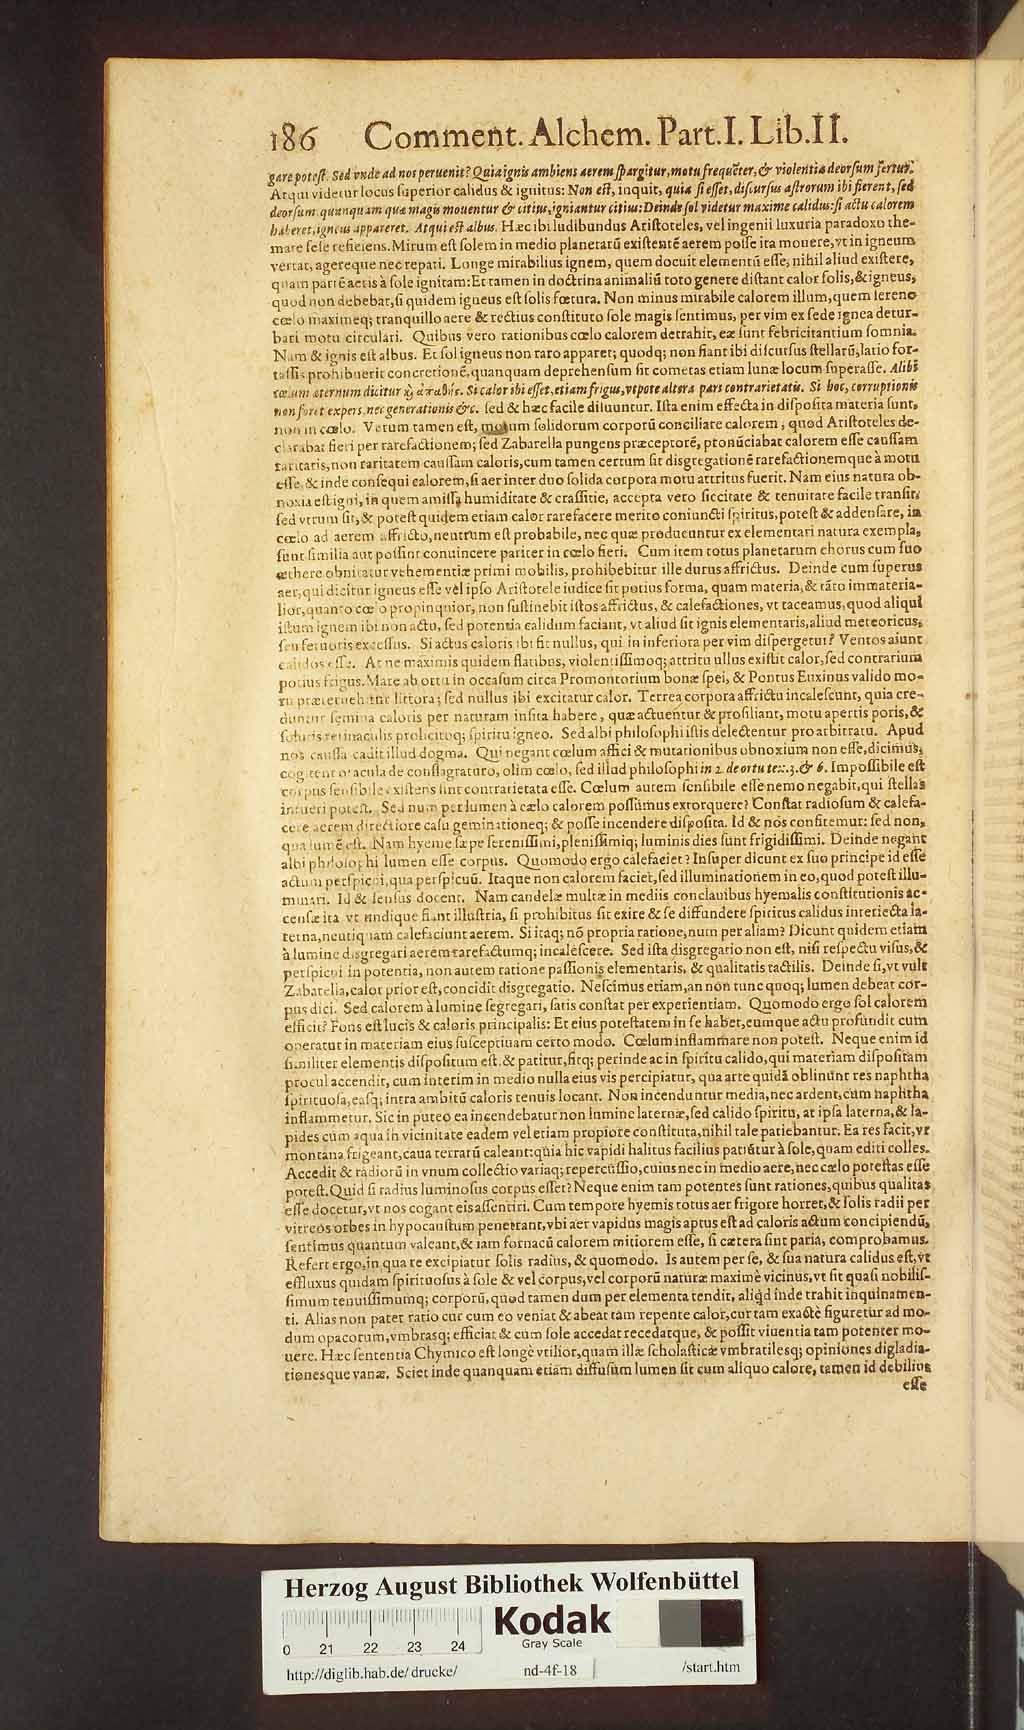 186 Comment. Alchem. Part. I. Lib. II.
gare potest. Sed vnde ad nos peruenit? Quia ignis ambiens aerem spargitur, motu frequēter, & violentia deorsum fertur.
Atqui videtur locus superior calidus & ignitus: Non est, inquit, quia si esset, discursus astrorum ibi fierent, sed
deorsum quanquam quæ magis mouentur & citius, igniantur citius: Deinde sol videtur maxime calidus: si actu calorem
haberet, igneus appareret. Atqui est albus. Hæc ibi ludibundus Aristoteles, vel ingenii luxuria paradoxo the-
mate sese reficiens. Mirum est solem in medio planetarū existentē aerem posse ita mouere, vt in igneum
vertat, agereque nec repati. Longe mirabilius ignem, quem docuit elementū esse, nihil aliud existere,
quam partē aeris à sole ignitam: Et tamen in doctrina animaliū toto genere distant calor solis, & igneus,
quod non debebat, si quidem igneus est solis fœtura. Non minus mirabile calorem illum, quem sereno
cœlo maximeq; tranquillo aere & rectius constituto sole magis sentimus, per vim ex sede ignea detur-
bari motu circulari. Quibus vero rationibus cœlo calorem detrahit, eæ sunt febricitantium somnia.
Nam & ignis est albus. Et sol igneus non raro apparet; quodq; non fiant ibi discursus stellarū, latio for-
tassis prohibuerit concretionē, quanquam deprehensum sit cometas etiam lunæ locum superasse. Alibi
cœlum æternum dicitur & ἀπαθὲς. Si calor ibi esset, etiam frigus, vtpote altera pars contrarietatis. Si hoc, corruptionis
non foret expers, nec generationis &c. sed & hæc facile diluuntur. Ista enim effecta in disposita materia sunt,
non in cœlo. Verum tamen est, motum solidorum corporū conciliare calorem, quod Aristoteles de-
clarabat fieri per rarefactionem; sed Zabarella pungens præceptorē, ptonūciabat calorem esse caussam
raritatis, non raritatem caussam caloris, cum tamen certum sit disgregationē rarefactionemque à motu
esse, & inde consequi calorem, si aer inter duo solida corpora motu attritus fuerit. Nam eius natura ob-
noxia est igni, in quem amissa humiditate & crassitie, accepta vero siccitate & tenuitate facile transit,
sed vtrum sit, & potest quidem etiam calor rarefacere merito coniuncti spiritus, potest & addensare, in
cœlo ad aerem affricto, neutrum est probabile, nec quæ producuntur ex elementari natura exempla,
sunt similia aut possint conuincere pariter in cœlo fieri. Cum item totus planetarum chorus cum suo
æthere obnitatur vehementiæ primi mobilis, prohibebitur ille durus affrictus. Deinde cum superus
aer, qui dicitur igneus esse vel ipso Aristotele iudice sit potius forma, quam materia, & tāto immateria-
lior, quanto cœlo propinquior, non sustinebit istos affrictus, & calefactiones, vt taceamus, quod aliqui
istum ignem ibi non actu, sed potentia calidum faciant, vt aliud sit ignis elementaris, aliud meteoricus,
seu feruoris excessus. Si actus caloris ibi fit nullus, qui in inferiora per vim dispergetur? Ventos aiunt
calidos esse. At ne maximis quidem flatibus, violentissimoq; attritu ullus existit calor, sed contrarium
potius frigus. Mare ab ortu in occasum circa Promontorium bonæ spei, & Pontus Euxinus valido mo-
tu præteruehitur littora; sed nullus ibi excitatur calor. Terrea corpora affrictu incalescunt, quia cre-
duntur semina caloris per naturam insita habere, quæ actuentur & prosiliant, motu apertis poris, &
solutis retinaculis prolicitoq; spiritu igneo. Sed albi philosophi istis delectentur pro arbitratu. Apud
nos caussa cadit illud dogma. Qui negant cœlum affici & mutationibus obnoxium non esse, dicimus,
cogitent oracula de conflagraturo, olim cœlo, sed illud philosophi in 2. de ortu tex. 3. & 6. Impossibile est
corpus sensibile existens sine contrarietate esse. Cœlum autem sensibile esse nemo negabit, qui stellas
intueri potest. Sed num per lumen à cælo calorem possumus extorquere? Constat radiosum & calefa-
cere aerem directiore casu geminationeq; & posse incendere disposita. Id & nos confitemur: sed non,
qua lumē est. Nam hyeme sæpe serenissimi, plenissimiq; luminis dies sunt frigidissimi. Deinde negant
albi philosophi lumen esse corpus. Quomodo ergo calefaciet? Insuper dicunt ex suo principe id esse
actum perspicui, qua perspicuū. Itaque non calorem faciet, sed illuminationem in eo, quod potest illu-
minari. Id & sensus docent. Nam candelæ multæ in mediis conclauibus hyemalis constitutionis ac-
censæ ita vt undique fiant illustria, si prohibitus sit exire & se diffundere spiritus calidus interiecta la-
terna, neutiquam calefaciunt aerem. Si itaq; nō propria ratione, num per aliam? Dicunt quidem etiam
à lumine disgregari aerem rarefactumq; incalescere. Sed ista disgregatio non est, nisi respectu visus, &
perspicui in potentia, non autem ratione passionis elementaris, & qualitatis tactilis. Deinde si, vt vult
Zabarella, calor prior est, concidit disgregatio. Nescimus etiam, an non tunc quoq; lumen debeat cor-
pus dici. Sed calorem à lumine segregari, satis constat per experientiam. Quomodo ergo sol calorem
efficit? Fons est lucis & caloris principalis: Et eius potestatem in se habet, eumque actu profundit cum
operatur in materiam eius susceptiuam certo modo. Cœlum inflammare non potest. Neque enim id
similiter elementis dispositum est, & patitur, fitq; perinde ac in spiritu calido, qui materiam dispositam
procul accendit, cum interim in medio nulla eius vis percipiatur, qua arte quidā oblinūnt res naphtha
spirituosa, easq; intra ambitū caloris tenuis locant. Non incenduntur media, nec ardent, cum naphtha
inflammetur. Sic in puteo ea incendebatur non lumine laternæ, sed calido spiritu, at ipsa laterna, & la-
pides cum aqua in vicinitate eadem vel etiam propiore constituta, nihil tale patiebantur. Ea res facit, vt
montana frigeant, caua terrarū caleant: quia hic vapidi halitus facilius patiūtur à sole, quam editi colles.
Accedit & radiorū in vnum collectio variaq; repercussio, cuius nec in medio aere, nec cælo potestas esse
potest. Quid si radius luminosus corpus esset? Neque enim tam potentes sunt rationes, quibus qualitas
esse docetur, vt nos cogant eis assentiri. Cum tempore hyemis totus aer frigore horret, & solis radii per
vitreos orbes in hypocaustum penetrant, vbi aer vapidus magis aptus est ad caloris actum concipiendū,
sentimus quantum valeant, & iam fornacū calorem mitiorem esse, si cætera sint paria, comprobamus.
Refert ergo, in qua re excipiatur solis radius, & quomodo. Is autem per se, & sua natura calidus est, vt
effluxus quidam spirituosus à sole & vel corpus, vel corporū naturæ maximè vicinus, vt sit quasi nobilis-
simum tenuissimumq; corporū, quod tamen dum per elementa tendit, aliqd inde trahit inquinamen-
ti. Alias non patet ratio cur cum eo veniat & abeat tam repente calor, cur tam exactè figuretur ad mo-
dum opacorum, vmbrasq; efficiat & cum sole accedat recedatque, & possit viuentia tam potenter mo-
uere. Hæc sententia Chymico est longè vtilior, quam illæ scholasticæ vmbratilesq; opiniones digladia-
tionesque vanæ. Sciet inde quanquam etiam diffusum lumen sit cum aliquo calore, tamen id debilius
esse
Herzog August Bibliothek Wolfenbüttel
Kodak
Gray Scale
0 21 22 23 24
http://diglib.hab.de/drucke/ nd-4f-18 /start.htm